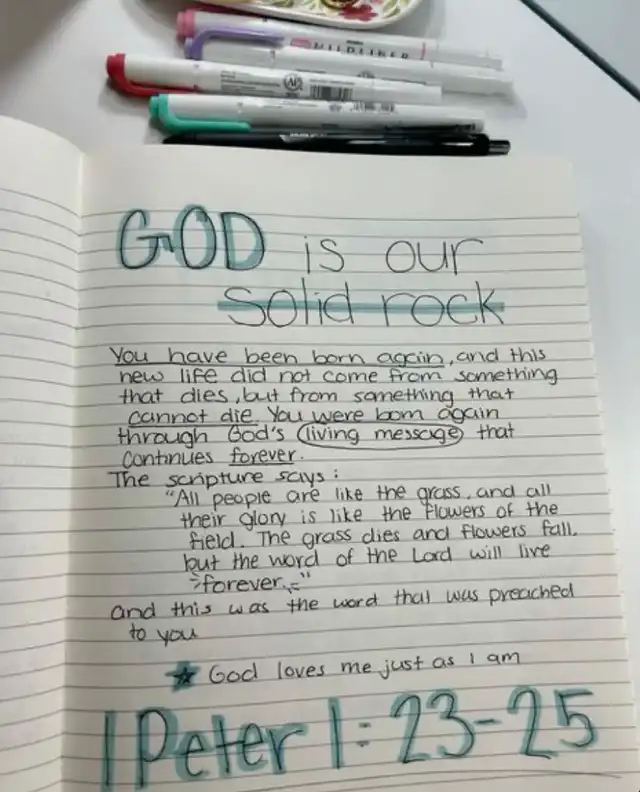 MILDLINER
GOD is our
solid rock
You have been born again, and this
new life did not come from something
that dies, but from something that
cannot die. You were born again
through God's living message that
continues forever.
The scripture says:
"All people are like the grass, and all
their glory is like the flowers of the
field. The grass dies and flowers fall.
but the word of the Lord will live
forever."
and this was the word that was preached
to you
God loves me just as I am
1 Peter 1:23-25